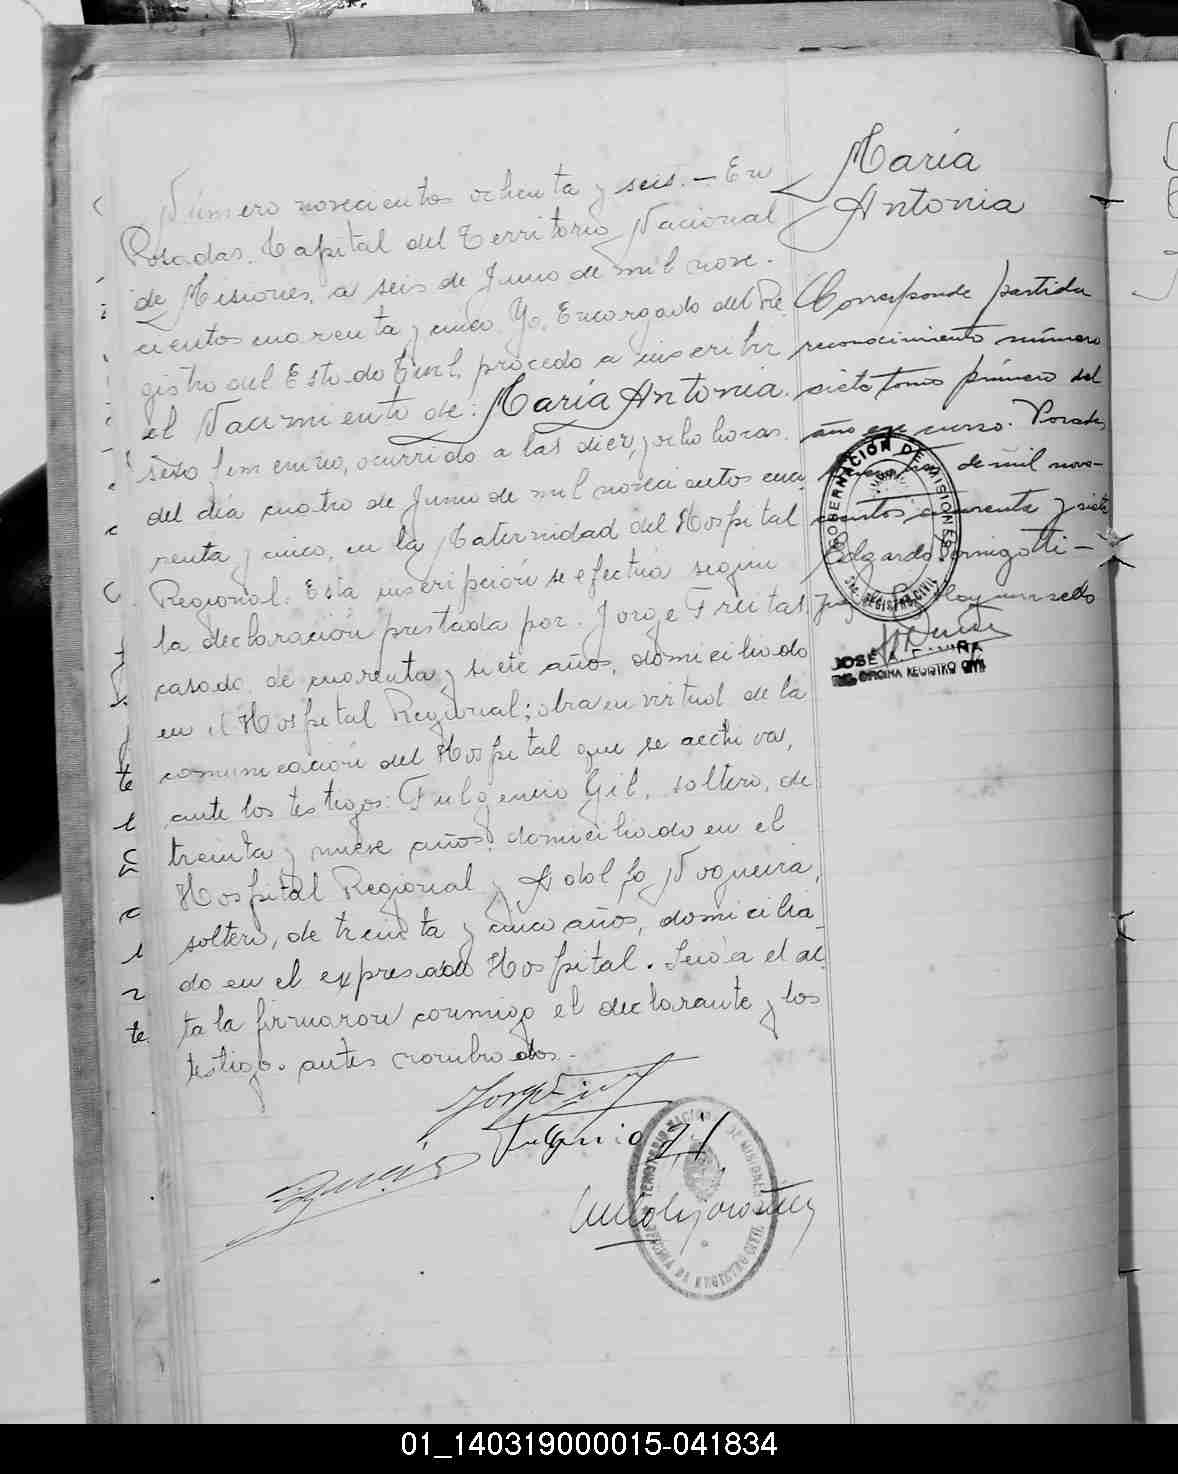 Número novecientos ochenta y seis.- En
Posadas, Capital del Territorio Nacional
de Misiones, a seis de Junio de mil nove-
cientos cuarenta y cinco. Yo, Encargado del Re
gistro del Estado Civil, procedo a inscribir
el Nacimiento de: María Antonia.
sexo femenino, ocurrido a las diez y ocho horas.
del día cuatro de Junio de mil novecientos cua
renta y cinco, en la Maternidad del Hospital
Regional. Esta inscripción se efectúa según
la declaración prestada por. Jorge Freitas,
casado, de cuarenta y siete años, domiciliado
en el Hospital Regional; obra en virtud de la
comunicación del Hospital que se archiva,
ante los testigos: Fulgencio Gil, soltero, de
treinta y nueve años, domiciliado en el
Hospital Regional y Adolfo Nogueira,
soltero, de treinta y cinco años, domicilia
do en el expresado Hospital. Leida el ac
ta la firmaron conmigo el declarante y los
testigos antes nombrados.-
Fulgencio Gil
TERRITORIO NACIONAL DE MISIONES
OFICINA DE REGISTRO CIVIL
María
Antonia
Corresponde partida
reconocimiento número
siete tomo primero del
año en curso. Posadas,
de mil nove-
cientos cuarenta y siete
Edgardo
Hay un sello
GOBERNACIÓN DE MISIONES
REGISTRO CIVIL
JOSE
OFICINA REGISTRO CIVIL
te
te
01_140319000015-041834